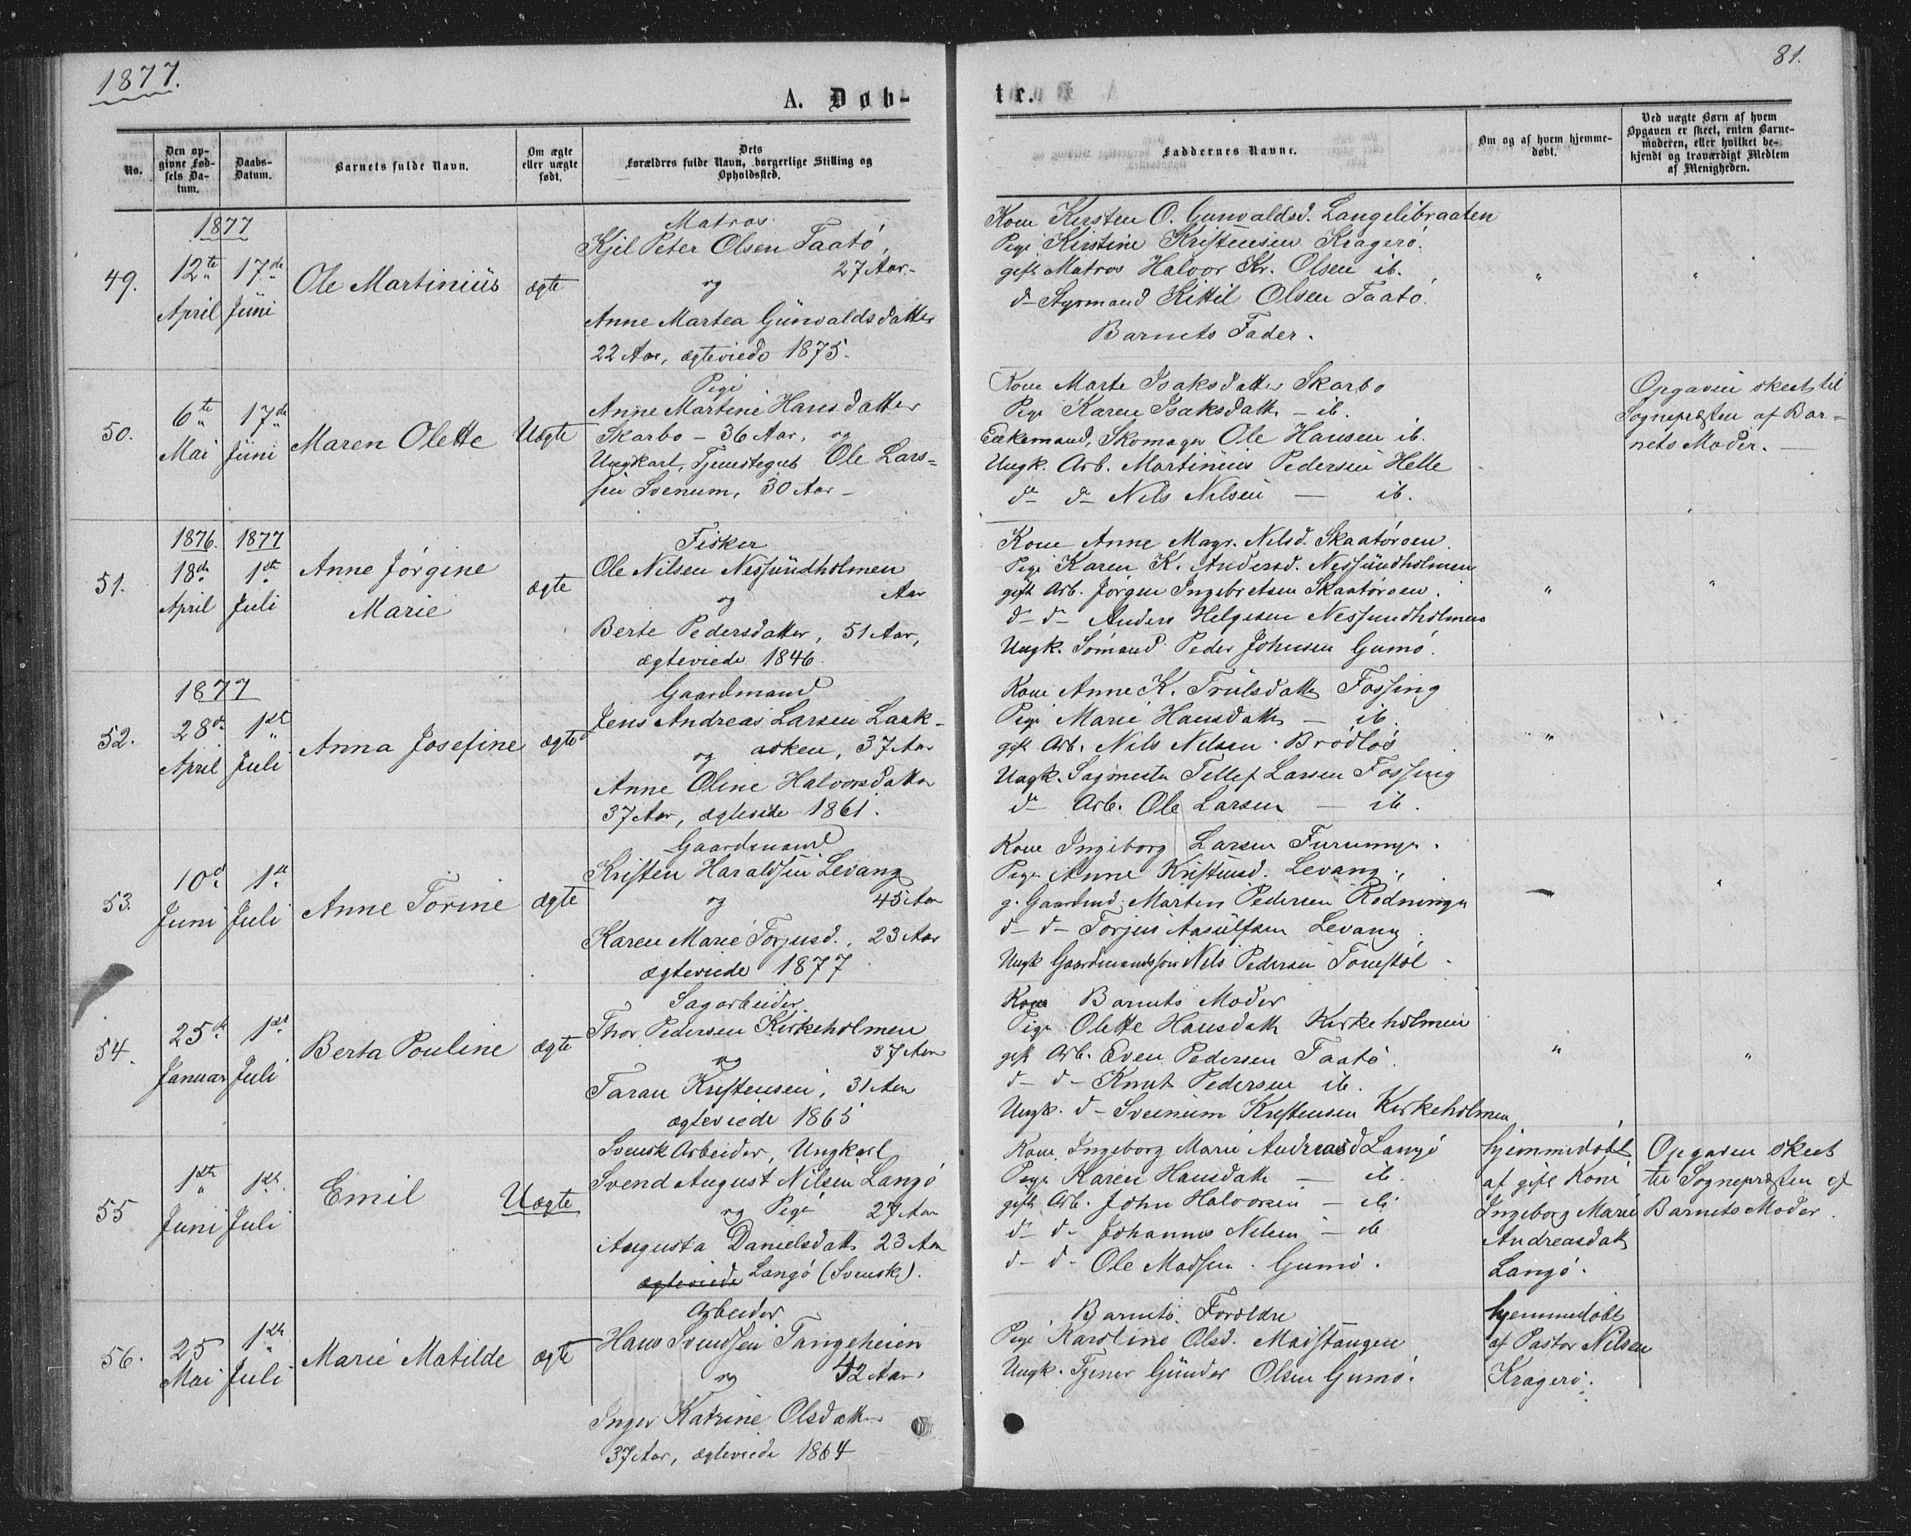 1877.
81.
A. Døb-
te.
No.
Den op-
givne Fød-
sels Da-
tum.
Daabs-
Datum.
Barnets fulde Navn.
Om ægte
eller uægte
født.
Dets
Forældres fulde Navn, borgerlige Stilling og
Opholdssted.
Faddernes Navne.
Om og af hvem hjemme-
døbt.
Ved uægte Børn af hvem
Opgaven er skeet, enten Barne-
moderen, eller hvilket be-
kjendt og troværdigt Medlem
af Menigheden.
1877
49.
12te
April
17de
Juni
Ole Martinius
ægte
Matros
Kjel Peter Olsen Taatø,
27 Aar
og
Anne Martea Gunvaldsdatter
22 Aar, ægteviede 1875.
Kone Kirsten O. Gunvaldsd. Langelibraaten
Pige Kirstine Kristensen Kragerø.
gift Matros Halvor Kr. Olsen ib.
d- Styrmand Kittil Olsen Taatø.
Barnets Fader.
"
"
50.
6te
Mai
17de
Juni
Maren Olette
Uægte
Pige
Anne Martine Hansdatter
Skarbo - 36 Aar, og
Ungkarl, Tjenestegut Ole Lars=
sen Svenum, 30 Aar -
Kone Marte Isaksdatter Skarbo
Pige Karen Isaksdatt - ib.
Enkemand, Skomager Ole Hansen ib.
Ungk. Arb. Martinius Pedersen Helle
d- d- Nils Nilsen - ib.
Opgaven skeet til
Sognepresten af Bar-
nets Moder. -
51.
1876.
18de
April
1877
1ste
Juli
Anne Jørgine
Marie
ægte
Fisker
Ole Nilsen Nessundholmen
og Aar
Berte Pedersdatter, 51 Aar,
ægteviede 1846.
Kone Anne Magr. Nilsd. Skaatøroen
Pige Karen K. Andersd. Nessundholmen
gift Arb. Jørgen Ingebretsen Skaatøroen.
d- d- Anders Helgesen Nessundholmen
Ungk. Sømand Peder Johnsen Gumø.
"
"
1877
52.
28de
April
1ste
Juli
Anna Josefine
ægte
Gaardmand
Jens Andreas Larsen Laak-
og asken, 37 Aar
Anne Oline Halvorsdatter
37 Aar, ægteviede 1861.
Kone Anne K. Trulsdatt Fossing
Pige Marie Hansdatt - ib.
gift Arb. Nils Nilsen Brødløs
Ungk. Sagmester Tellef Larsen Fossing
d- Arb. Ole Larsen - ib.
"
53.
10de
Juni
1ste
Juli
Anne Torine
ægte
Gaardmand
Kristen Haraldsen Levang
og 45 Aar
Karen Marie Torjusd., 23 Aar
ægteviede 1877.
Kone Ingeborg Larsen Furumyr.
Pige Anne Kristensd. Levang.
g. Gaardmd. Martin Pedersen Rødninga
d- d- Torjus Aasulfsen Levang.
Ungk Gaardmandssøn Nils Pedersen Tonestøl
-
"
54.
25de
Januar
1ste
Juli
Berta Pouline
ægte
Sagarbeider
Thor Pedersen Kirkeholmen
og 37 Aar
Taran Kristensen, 31 Aar
ægteviede 1865
Kone Barnets Moder
Pige Olette Hansdatt Kirkeholmen
gift Arb. Even Pedersen Taatø.
d- d- Knut Pedersen ib.
Ungk. d- Sveinum Kristensen Kirkeholmen
"
"
55
1ste
Juni
1ste
Juli
Emil
Uægte
Svensk Arbeider, Ungkarl
Svend August Nilsen Langø
og Pige 27 Aar
Augusta Danielsdatt 23 Aar
ægteviede Langø (Svensk).
Kone Ingeborg Marie Andreasd Langø
Pige Karen Hansdatt - ib.
gift Arb. John Halvorsen - ib
d- d- Johannes Nilsen - ib
d- d- Ole Madsen Gumø.
hjemmedøbt
af gift Kone
Ingeborg Marie
Andreasdatt
Langø.
Opgaven skeet
til Sognepresten af
Barnets Moder.
56.
25
Mai
1ste
Juli
Marie Matilde
ægte
Arbeider
Hans Svendsen Tangeheien
og 42 Aar,
Inger Katrine Olsdatter
37 Aar, ægteviede 1864
Barnets Foreldre
Pige Karoline Olsd. Maistangen
Ungk. Tjener Gunder Olsen Gumø.
hjemmedøbt
af Pastor Nilsen
Kragerø.